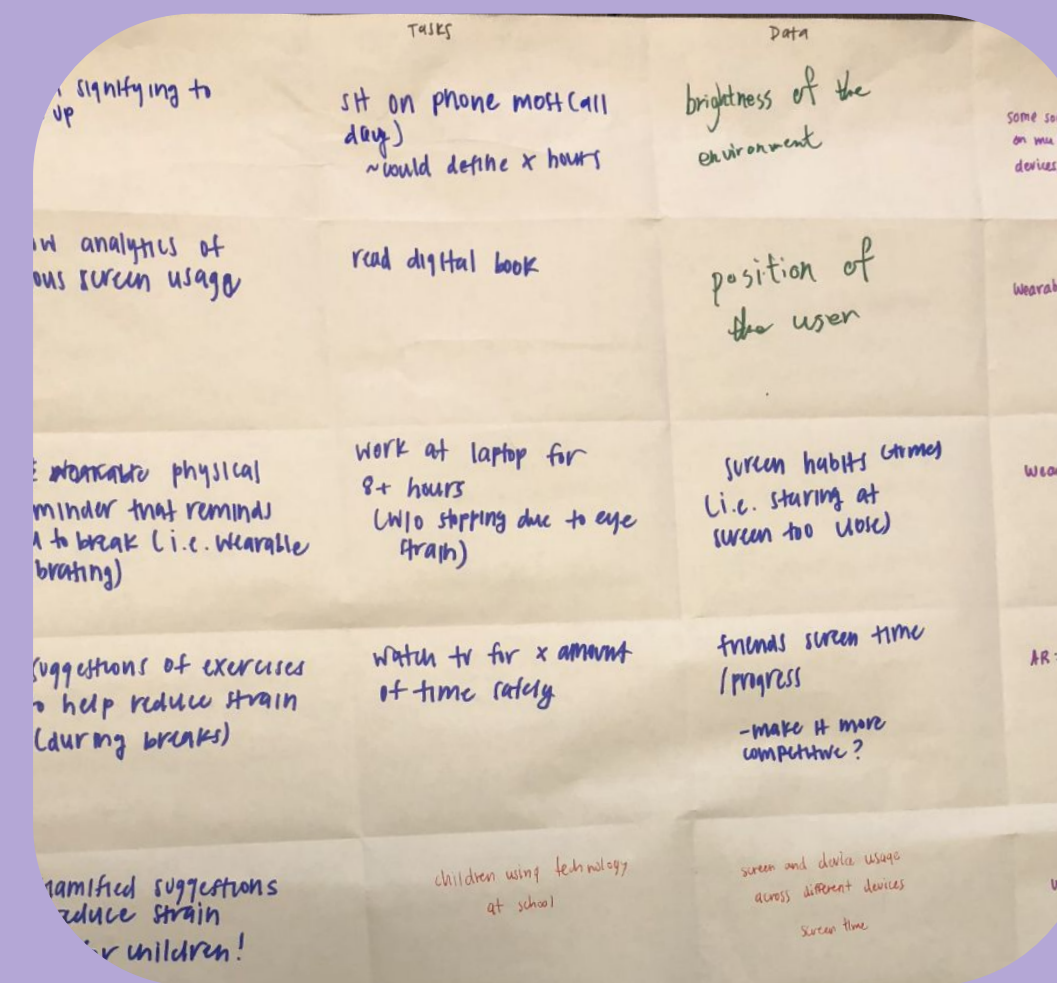 Tasks
Data
signifying to
up
sit on phone most (all
day)
~would define x hours
brightness of the
environment
some so
on mu
devices
ow analytics of
ous screen usage
read digital book
position of
the user
Wearab
physical
minder that reminds
to break (i.e. wearable
brating)
work at laptop for
8+ hours
(w/o stopping due to eye
strain)
screen habits
(i.e. staring at
screen too close)
Wea
suggestions of exercises
o help reduce strain
(during breaks)
watch tv for x amount
of time safely
friends screen time
/progress
-make it more
competitive?
AR
gamified suggestions
reduce strain
or children!
children using technology
at school
screen and device usage
across different devices
screen time